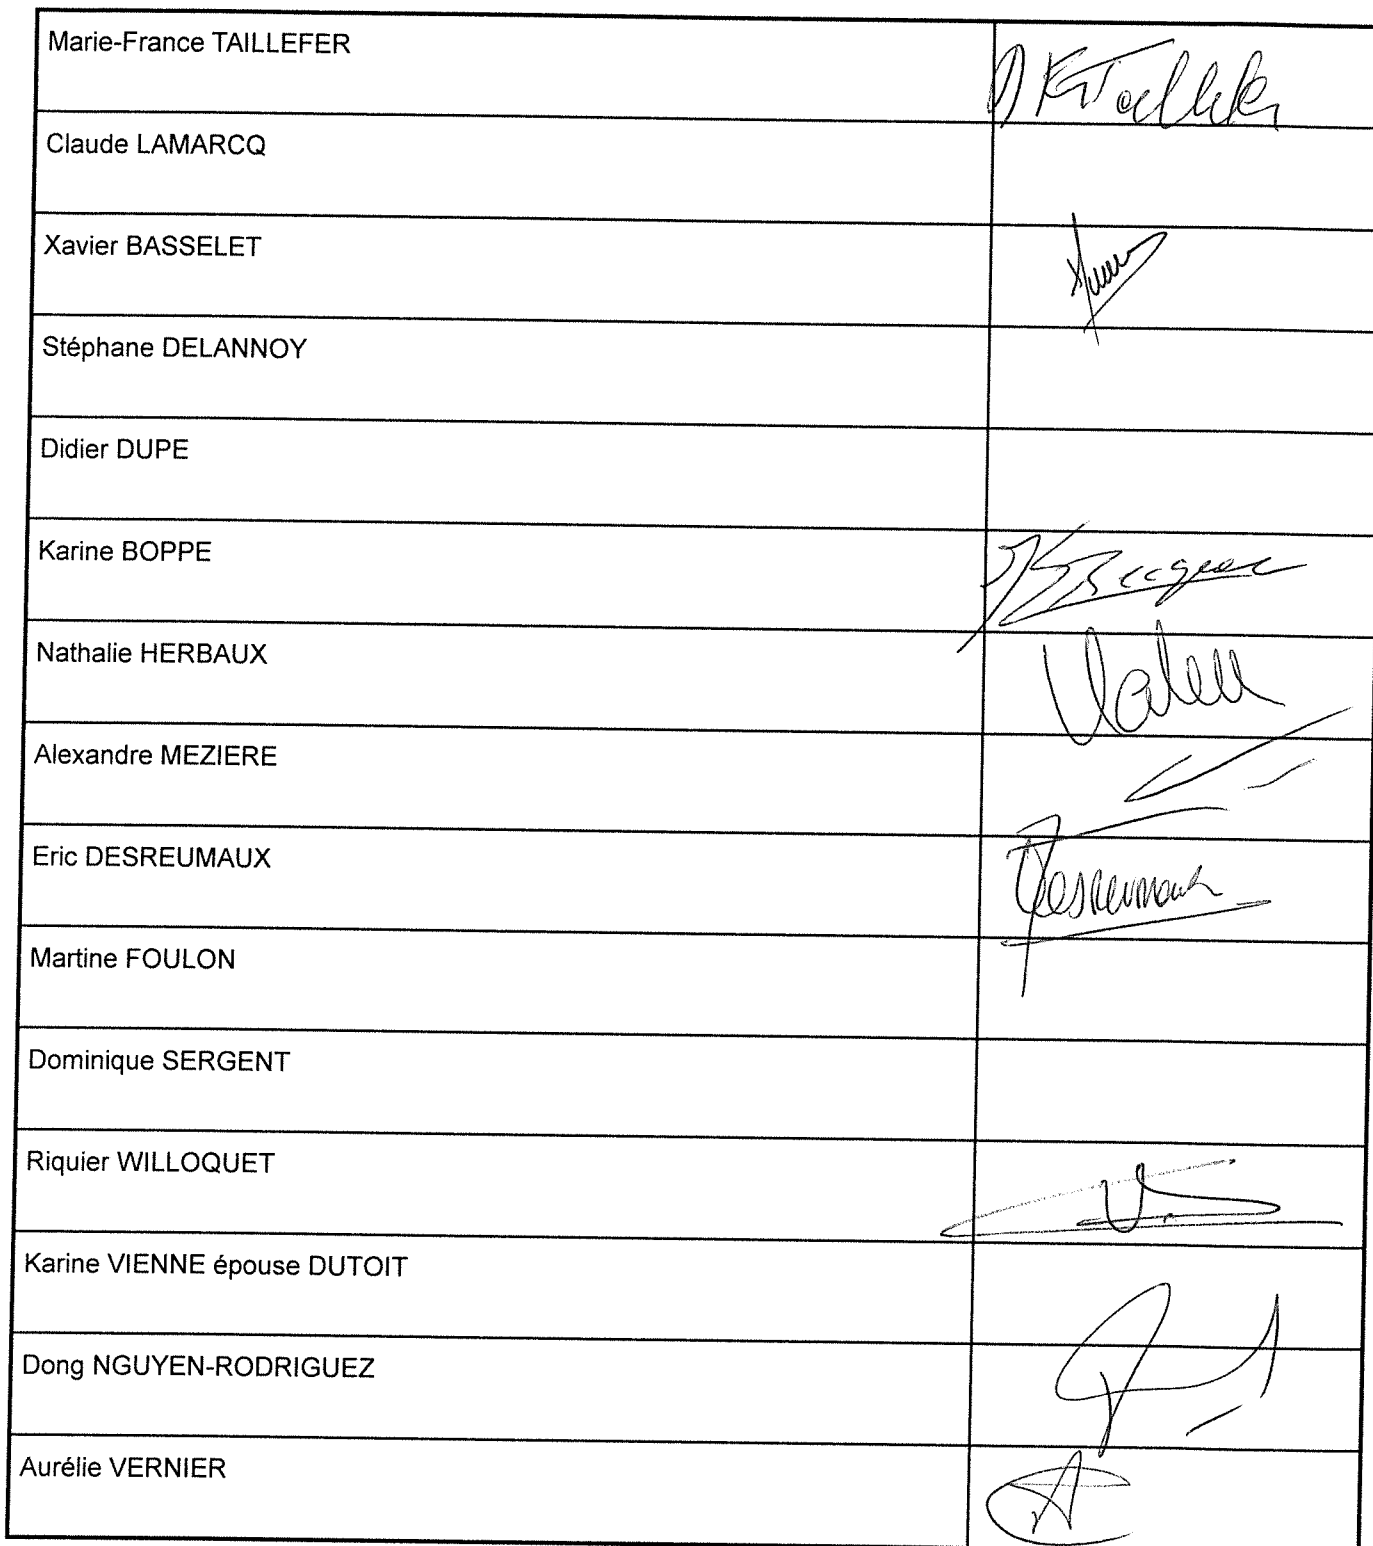 Marie-France TAILLEFER
Claude LAMARCQ
Xavier BASSELET
Stéphane DELANNOY
Didier DUPE
Karine BOPPE
Nathalie HERBAUX
Alexandre MEZIERE
Eric DESREUMAUX
Martine FOULON
Dominique SERGENT
Riquier WILLOQUET
Karine VIENNE épouse DUTOIT
Dong NGUYEN-RODRIGUEZ
Aurélie VERNIER